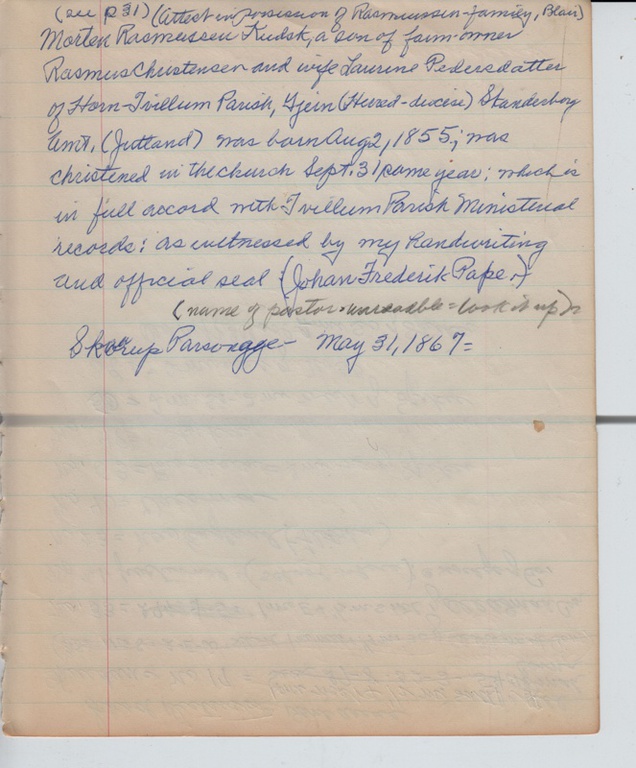 (see p 31) (attest in possession of Rasmussen-family, Blair)
Morten Rasmussen Kudsk, a son of farm-owner
Rasmus Christensen and wife Laurine Pedersdatter
of Horn-Tvillum Parish, Gjern (Herred-diocese) Skanderborg
Amt. (Jutland) was born Aug 2, 1855; was
christened in the church Sept. 31 same year; which is
in full accord with Tvillum Parish Ministerial
records: as witnessed by my handwriting
and official seal (Johan Frederik Pape.)
(name of pastor unreadable = look it up)
Parsonage - May 31, 1867 =